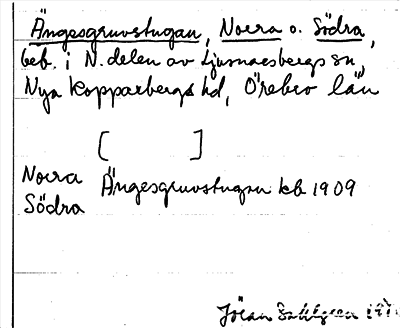 Ängesgruvstugan, Norra o. Södra,
beb. i N. delen av Ljusnarsbergs sn,
Nya Kopparbergs hd, Örebro län
[ ]
Norra Ängesgruvstugan kb 1909
Södra
Jöran Sahlgren